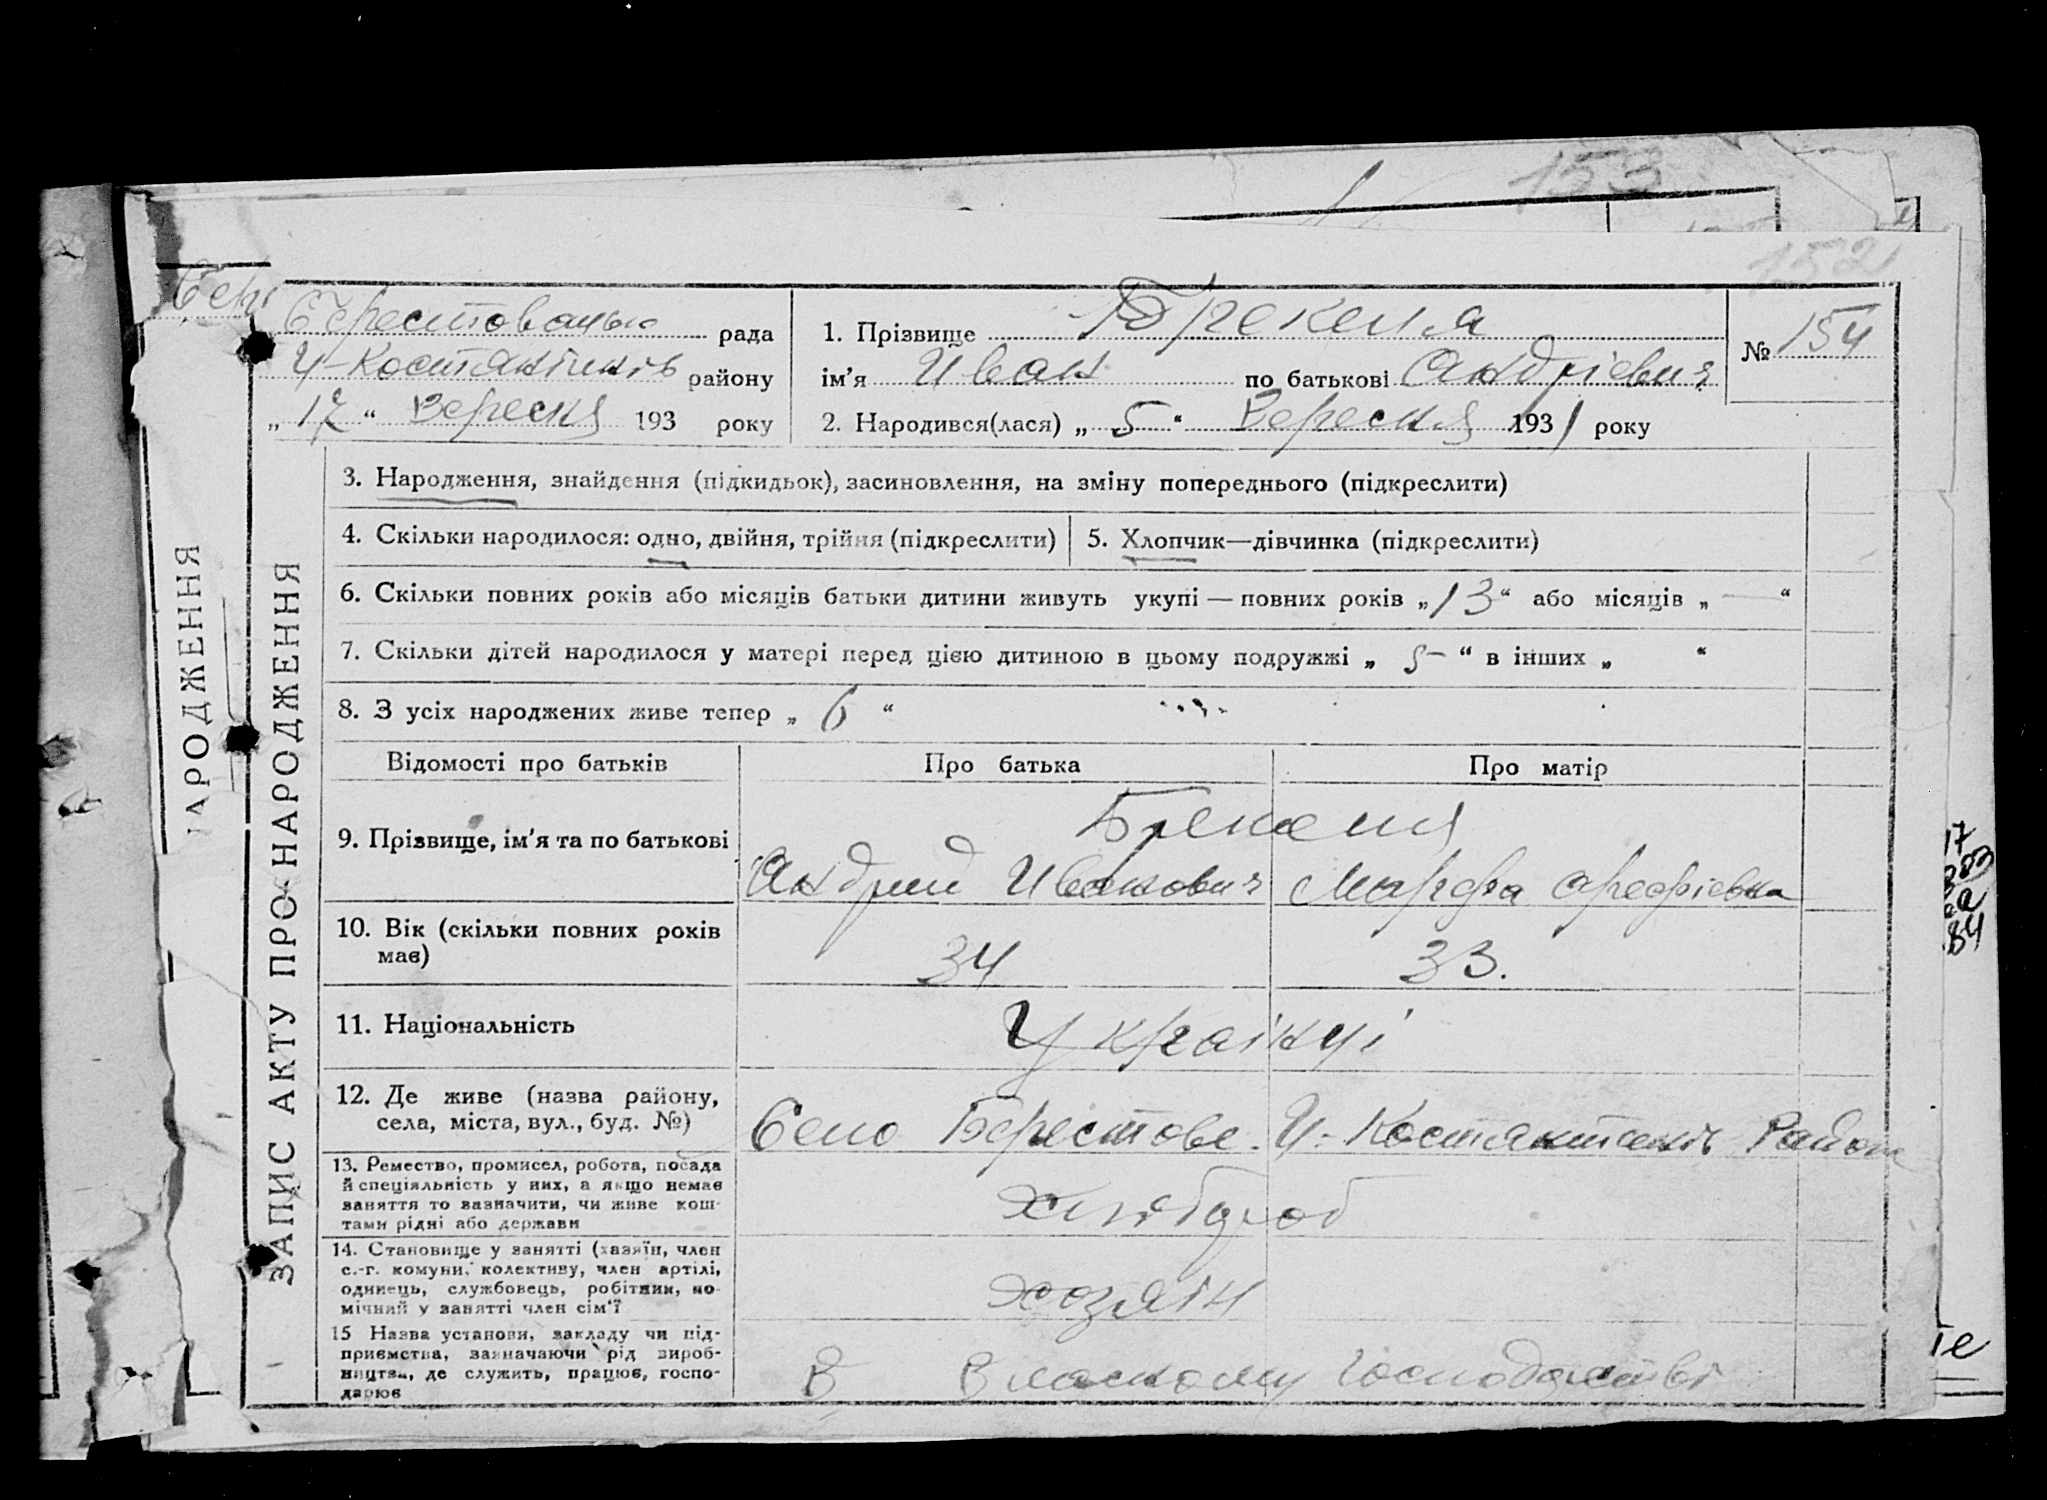 153
152
НАРОДЖЕННЯ
ЗАПИС АКТУ ПРО НАРОДЖЕННЯ
рада
Ч-Костянтинів району
„17“ Вересня 193 року
1. Прізвище Брекеля
ім'я Иван по батькові Андрієвич
2. Народився(лася) „5“ Вересня 1931 року
№ 154
3. Народження, знайдення (підкидьок), засиновлення, на зміну попереднього (підкреслити)
4. Скільки народилося: одно, двійня, трійня (підкреслити)
5. Хлопчик—дівчинка (підкреслити)
6. Скільки повних років або місяців батьки дитини живуть укупі — повних років „13“ або місяців „—“
7. Скільки дітей народилося у матері перед цією дитиною в цьому подружжі „5“ в інших „ “
8. З усіх народжених живе тепер „6“
Відомості про батьків Про батька Про матір
9. Прізвище, ім'я та по батькові
Брекеля
Андрий Иванович Марфа Арефіевна
10. Вік (скільки повних років має) 34 33.
11. Національність Українці
12. Де живе (назва району, села, міста, вул., буд. №)
Село Берестове. Ч-Костянтинів Район
13. Ремество, промисел, робота, посада й спеціяльність у них, а якщо немає заняття то зазначити, чи живе коштами рідні або держави
хлібороб
14. Становище у занятті (хазяїн, член с.-г. комуни, колективу, член артілі, одинець, службовець, робітник, помічний у занятті член сім'ї
хозяін
15 Назва установи, закладу чи підприємства, зазначаючи рід виробництва, де служить, працює, господарює
В Власному господарстві